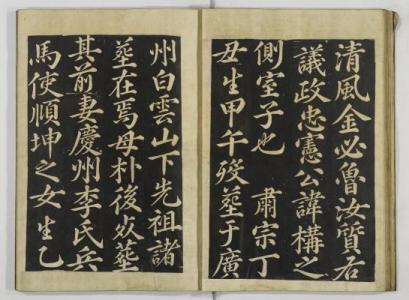 清風金必魯汝質右
議政忠憲公諱構之
側室子也 肅宗丁
丑生甲午歿塟于廣
州白雲山下先祖諸
塟在焉母朴後从塟
其前妻慶州李氏兵
馬使順坤之女生乙